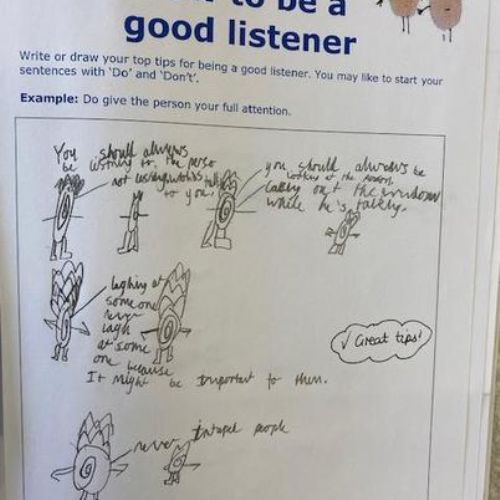 to be a
good listener
Write or draw your top tips for being a good listener. You may like to start your
sentences with 'Do' and 'Don't'.
Example: Do give the person your full attention.
You should always
be listning to the perso
not
to you.
you should always be
looking at the person.
out the window
while he's talking.
laghing at
someone
never
lagh
at some
one because
It might be Important to them.
✓ Great tips!
never intarupt people